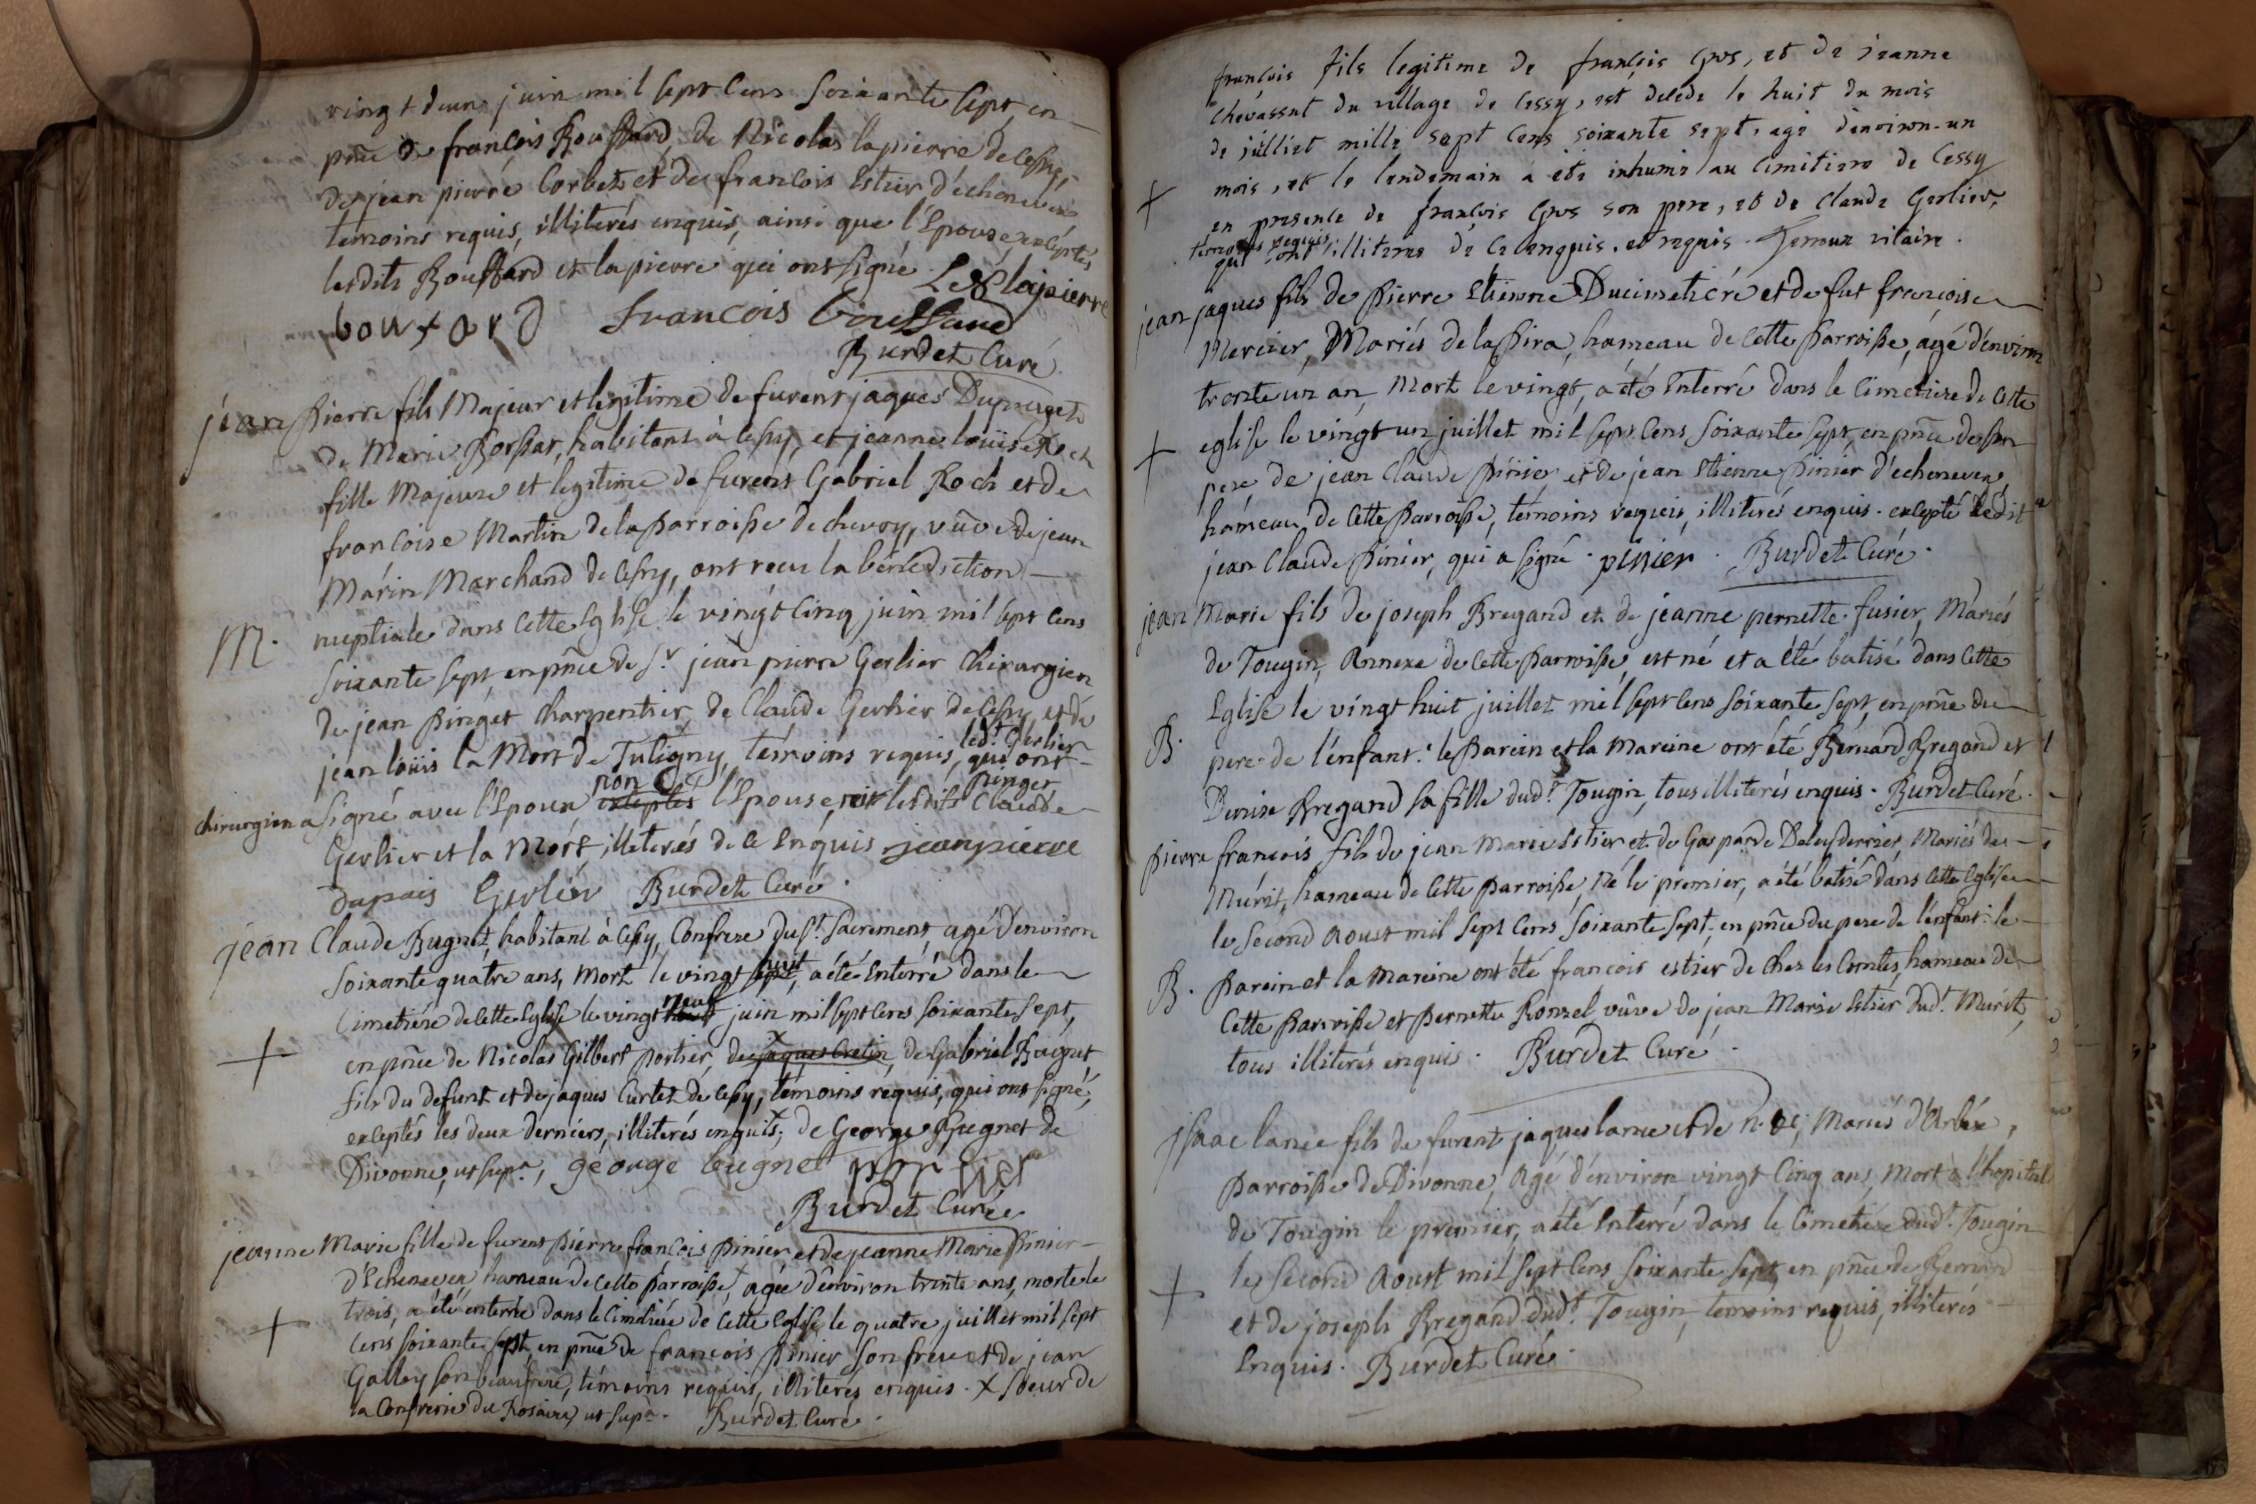 vingt deux juin mil sept cens soixante sept, en
pñce de francois Bouffard, de Nicolas lapierre de Cessy,
de jean pierre Corbet et de francois Estier d'echenevex
temoins requis, illiterés enquis, ainsi que l'Epouse, exceptés
lesdits Bouffard et lapierre qui ont signé. lapierre
bouffard francois Bouffard
Burdet Curé
jean Pierre fils Majeur et legitime de furent jaques Dupuget
de Marie Borssat, habitant à Cessy, et jeanne louise Roch
fille Majeure et legitime de furent Gabriel Roch et de
francoise Martin de la Parroisse de chevry, vũve de jean
Marin Marchand de Cessy, ont recu la bénédiction
M. nuptiale dans Cette Eglise le vingt Cinq juin mil sept cens
soixante sept, en pñce de s.r jean pierre Gerlier Chirurgien
de jean Pinget charpentier, de Claude Gerlier de Cessy, et de
jean loüis la Mort de Tutigny, temoins requis, ledt. Gerlier qui ont
chirurgien a signé avec l'Epoux non exceptés l'Epouse, lesdits pinget Claude
Gerlier et la Mort, illiterés de ce Enquis jean pierre
dupuis Gerlier Burdet Curé.
jean Claude Bugnet, habitant à Cessy, Confrere du st. Sacrement, agé d'environ
soixante quatre ans, mort le vingt huit, a été Enterré dans le
Cimetiére de Cette Eglise le vingt neuf juin mil sept cens soixante sept,
en pñce de Nicolas Gilbert portier, de jaques Cretin, de Gabriel Bugnet
fils du defunt et de jaques Curtet de Cessy, témoins requis, qui ont signé,
exceptés les deux derniers, illiterés enquis; de George Bugnet de
Divonne, ut sup.a, george bugnet portier
Burdet Curé
jeanne Marie fille de furent Pierre francois Pinier et de jeanne Marie Pinier
d'Echenevex, hameau de Cette Parroisse, agée d'environ trente ans, morte le
trois, a été enterrée dans le Cimetiére de Cette Eglise le quatre juillet mil sept
Cens soixante sept, en pñce de francois Pinier son frere et de jean
Galley son beaufrere, témoins requis, illiterés enquis. x soeur de
la Confrerie du Rosaire, ut sup.a. Burdet Curé.
françois fils legitime de françois Gros, et de jeanne
chevassut du village de Cessy, est décédé le huit du mois
de jüilliet mille sept cens soixante sept, agé d'environ un
mois, et le lendemain a été inhumé au cimitiere de Cessy
en presence de françois Gros son pere, et de Claude Gerlier,
temoins requis
qui sont illiteres de ce enquis, et requis. vicaire.
jean jaques fils de Pierre Etienne Ducimetiére et de fut francoise
Mercier, Mariés de la Pira, hameau de Cette Parroisse, agé d'environ
trente un an, Mort le vingt, a été Enterré dans le Cimetiere de Cette
eglise le vingt un juillet mil sept Cens soixante sept, en pñce de son
pere de jean Claude Pinier et de jean Etienne Pinier d'echenevex,
hameau de Cette Parroisse, témoins requis, illiterés enquis. excepté ledit
jean Claude Pinier, qui a signé. pinier. Burdet Curé.
jean Marie fils de joseph Bregand et de jeanne pernette fusier, Mariés
de Tougin, Annexe de Cette Parroisse, est né et a été batisé dans Cette
Eglise le vingt huit juillet mil sept Cens soixante sept, en pñce du
B. pere de l'enfant: le Parein et la Mareine ont été Bernard Bregand et
Denise Bregand sa fille dud.t Tougin, tous illiterés enquis. Burdet Curé.
Pierre francois fils de jean Marie Estier et de Gasparde Mariés de
Murit, hameau de Cette Parroisse, Né le premier, a été batisé dans Cette Eglise
le second Aoust mil sept Cens soixante sept, en pñce du pere de l'enfant: le
B. Parein et la Mareine ont été francois estier de Chez les Comtes, hameau de
Cette Parroisse et Pernette Ronzel vũve de jean Marie Estier dud.t Murit,
tous illiterés enquis. Burdet Curé.
jsaac larue fils de furent jaques larue et de n. Mariés d'Arbére,
Parroisse de Divonne, Agé d'environ vingt Cinq ans, Mort à l'hopital
de Tougin le premier, a été Enterré dans le Cimetiére dud.t Tougin
le second Aoust mil sept Cens soixante sept en pñce de Bernard
et de joseph Bregand dud.t Tougin, temoins requis, illiterés
Enquis. Burdet Curé.